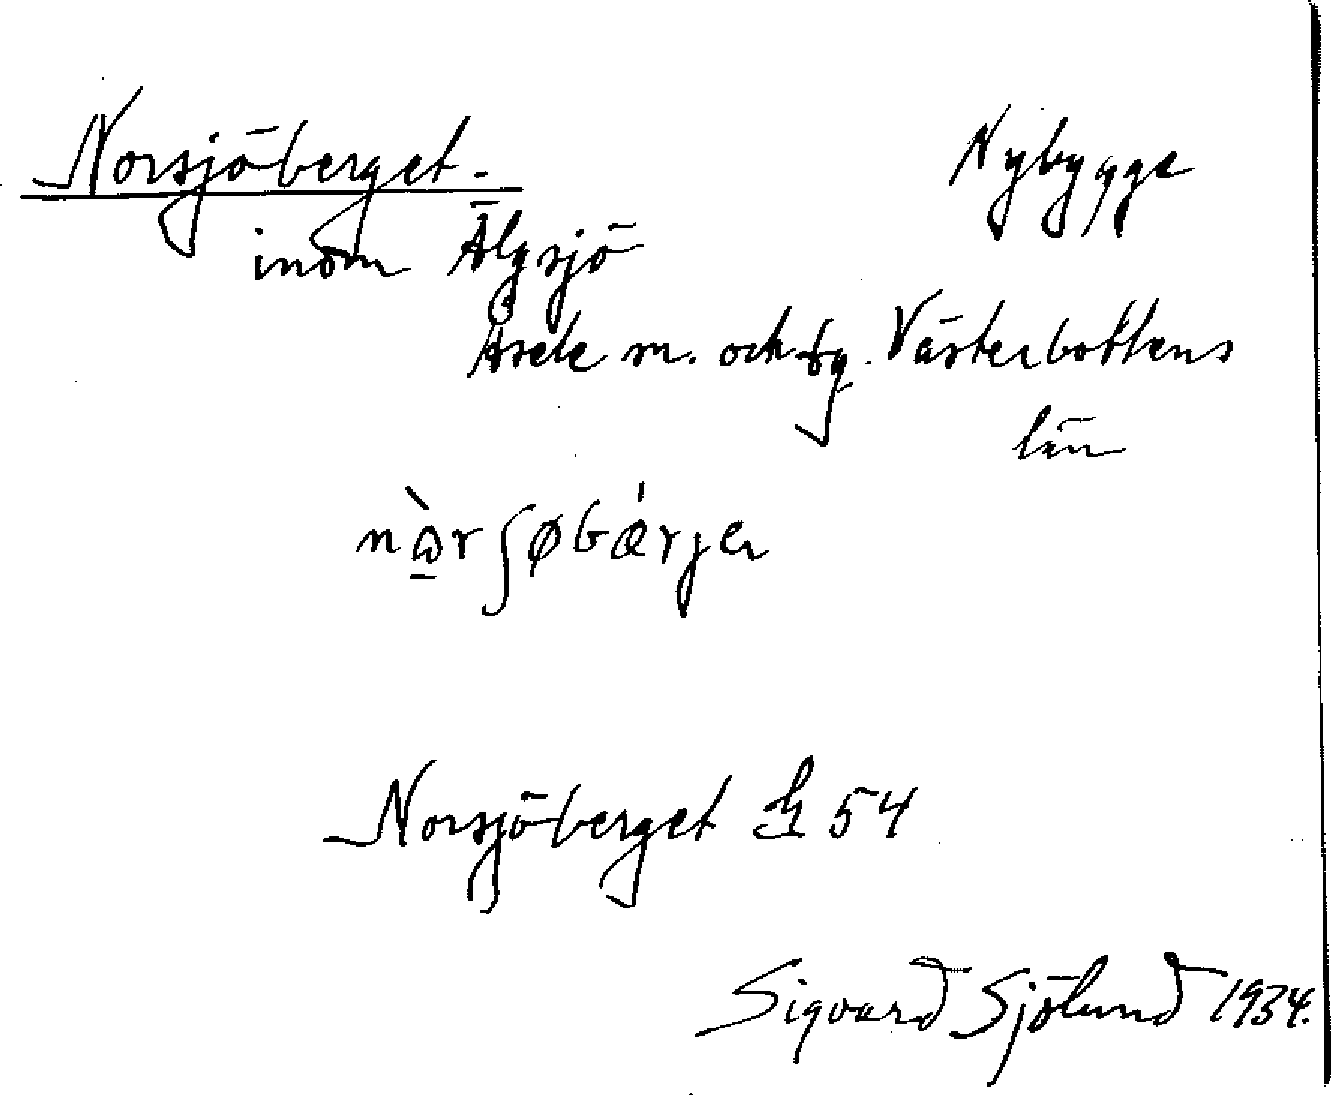 Norsjöberget. Nybygge
inom Älgsjö
Åsele sn. och tg. Västerbottens
län
nàrʃøbǽrjer
Norsjöberget 54
Sigvard Sjölund 1934.